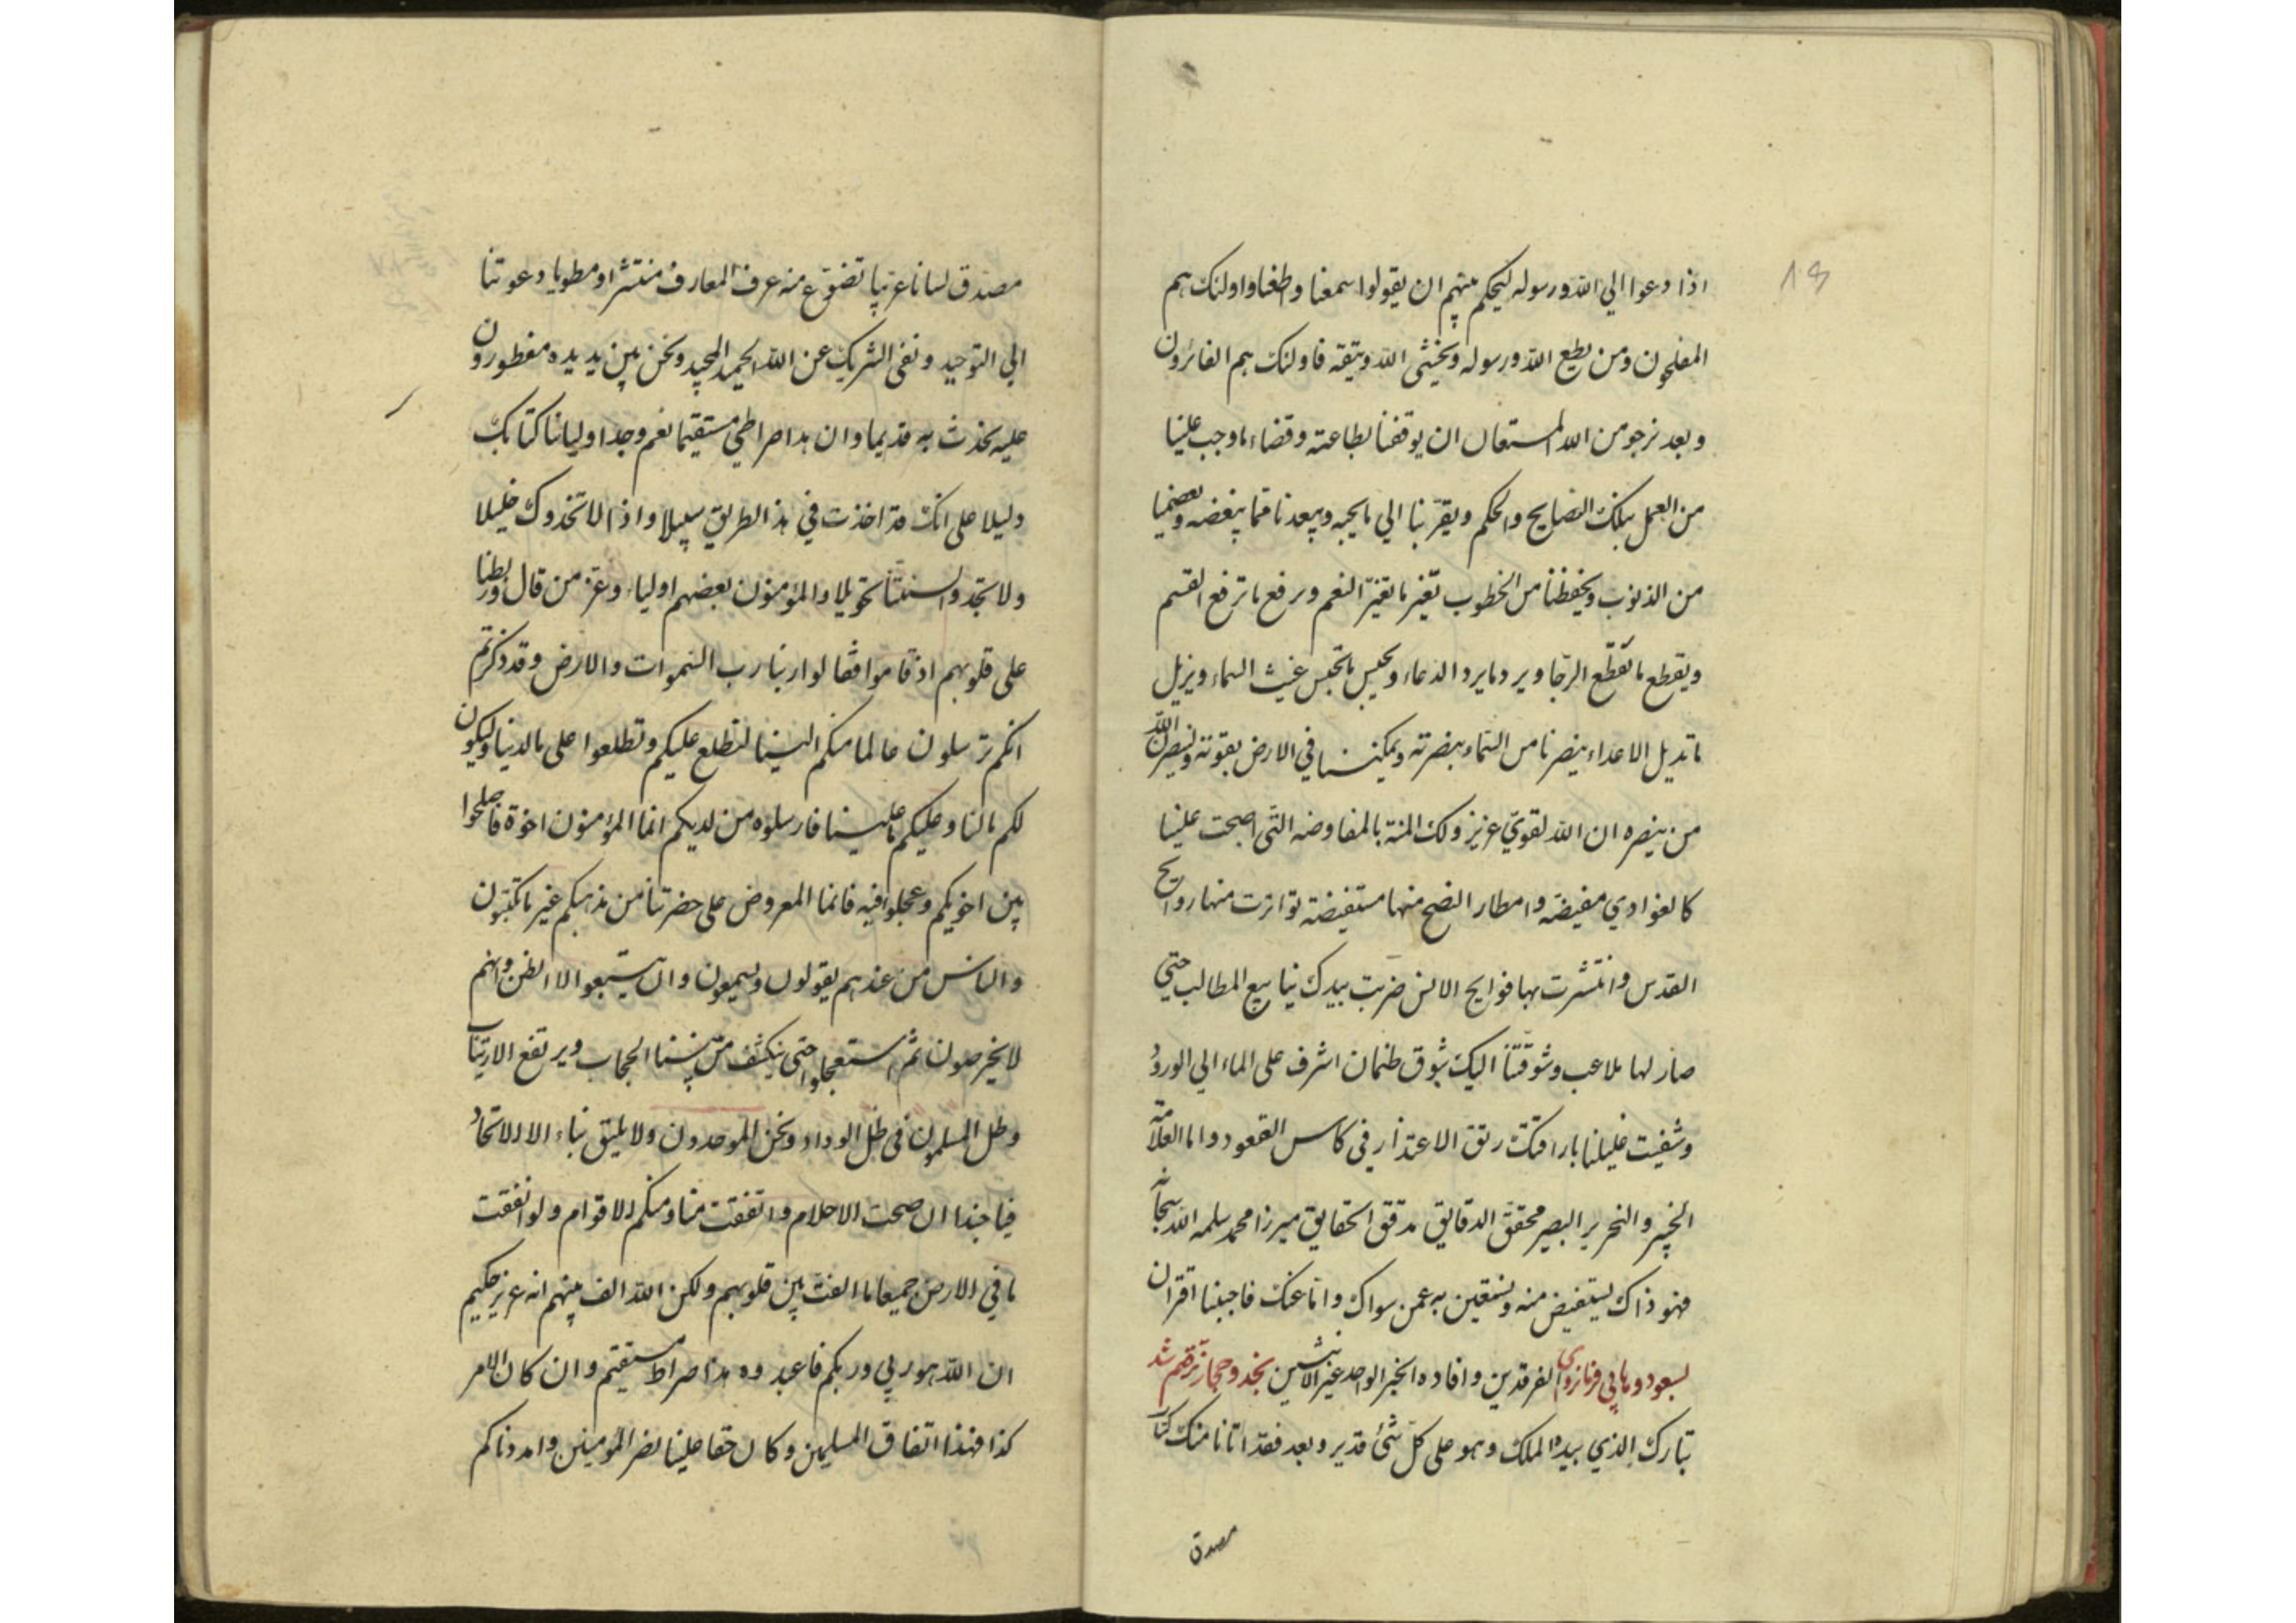 اذا دعوا الي الله ورسوله ليحكم بينهم ان يقولوا سمعنا واطعنا واولئك هم
المفلحون ومن يطع الله ورسوله ويخشى الله ويتقه فاولئك هم الفائزون
وبعد نرجو من الله المستعان ان يوفقنا بطاعته وقضاء ما وجب علينا
من العمل بتلك النصايح والحكم ويقربنا الي ما يحبه ويبعدنا عما يبغضه ويعصمنا
من الذنوب ويحفظنا من الخطوب تغير ما تغير النعم ورفع ما ترفع القسم
ويقطع ما تقطع الرجا ويرد ما يرد الدعاء ويحبس ما تحبس غيث السماء ويزيل
ما تديل الاعداء ينصرنا من السماء بنصرته ويمكننا في الارض بقوته ولينصرن الله
من ينصره ان الله لقوي عزيز ولك المنة بالمفاوضه التي اصبحت علينا
كالغوادي مفيضة وامطار النصح منها مستفيضة تواترت منها روايح
القدس وانتشرت بها فوايح الانس ضربت بيدك ينابيع المطالب حتي
صار لها ملاعب وشوقتنا اليك شوق ظمان اشرف على الماء الي الورود
وشفيت غليلنا بارافتك رتق الاعتذار في كاس القعود واما العلامة
الخبير والنحرير البصير محقق الدقايق مدقق الحقايق ميرزا محمد سلمه الله سبحانه
فهو ذاك يستفيض منه ونستعين به عمن سواك وانا عنك فاجبنا اقتران
الفرقدين وافاده الخبر الواحد غير الاثنين بسعود وهابي فرمانرواي نجد وحجاز ترقيم شد
تبارك الذي بيده الملك وهو على كل شئ قدير وبعد فقد اتانا منك كتاب
مصدق
مصدق لسانا عربيا تضوع منه عرف المعارف منتشرا ومطويا دعوتنا
الي التوحيد ونفي الشريك عن الله الحميد المجيد ونحن بين يديه مفطورون
عليه نحدث به قديما وان هذا صراطي مستقيما نعم وجد اولياننا كتابك
دليلا على انك قد اخذت في هذا الطريق سبيلا واذا لاتخذوك خليلا
ولا تجدوا لسنتنا تحويلا والمؤمنون بعضهم اولياء وعز من قال وربطنا
على قلوبهم اذ قاموا فقالوا ربنا رب السموات والارض وقد ذكرتم
انكم ترسلون عالما منكم الينا لنطلع عليكم وتطلعوا على ما لدينا وليكون
لكم مالنا وعليكم ما علينا فارسلوه من لديكم انما المؤمنون اخوة فاصلحوا
بين اخويكم وعجلوا فيه فانما المعروض على حضرتنا من مذهبكم غير ما تكتبون
والناس من عندهم يقولون ويسمعون وان يتبعوا الا الظن وانهم
لا يخرصون ثم استعجلوا حتى ينكشف من بيننا الحجاب ويرتفع الارتياب
وظل المسلمون في ظل الوداد ونحن الموحدون ولا يليق بناء الا الاتحاد
فياحبذا ان صحت الاحلام واتفقت منا ومنكم الاقوام ولو انفقت
ما في الارض جميعا ما الفت بين قلوبهم ولكن الله الف بينهم انه عزيز حكيم
ان الله هو ربي وربكم فاعبدوه هذا صراط مستقيم وان كان الامر
كذا فهذا اتفاق المسلمين وكان حقا علينا نصر المؤمنين وامددناكم